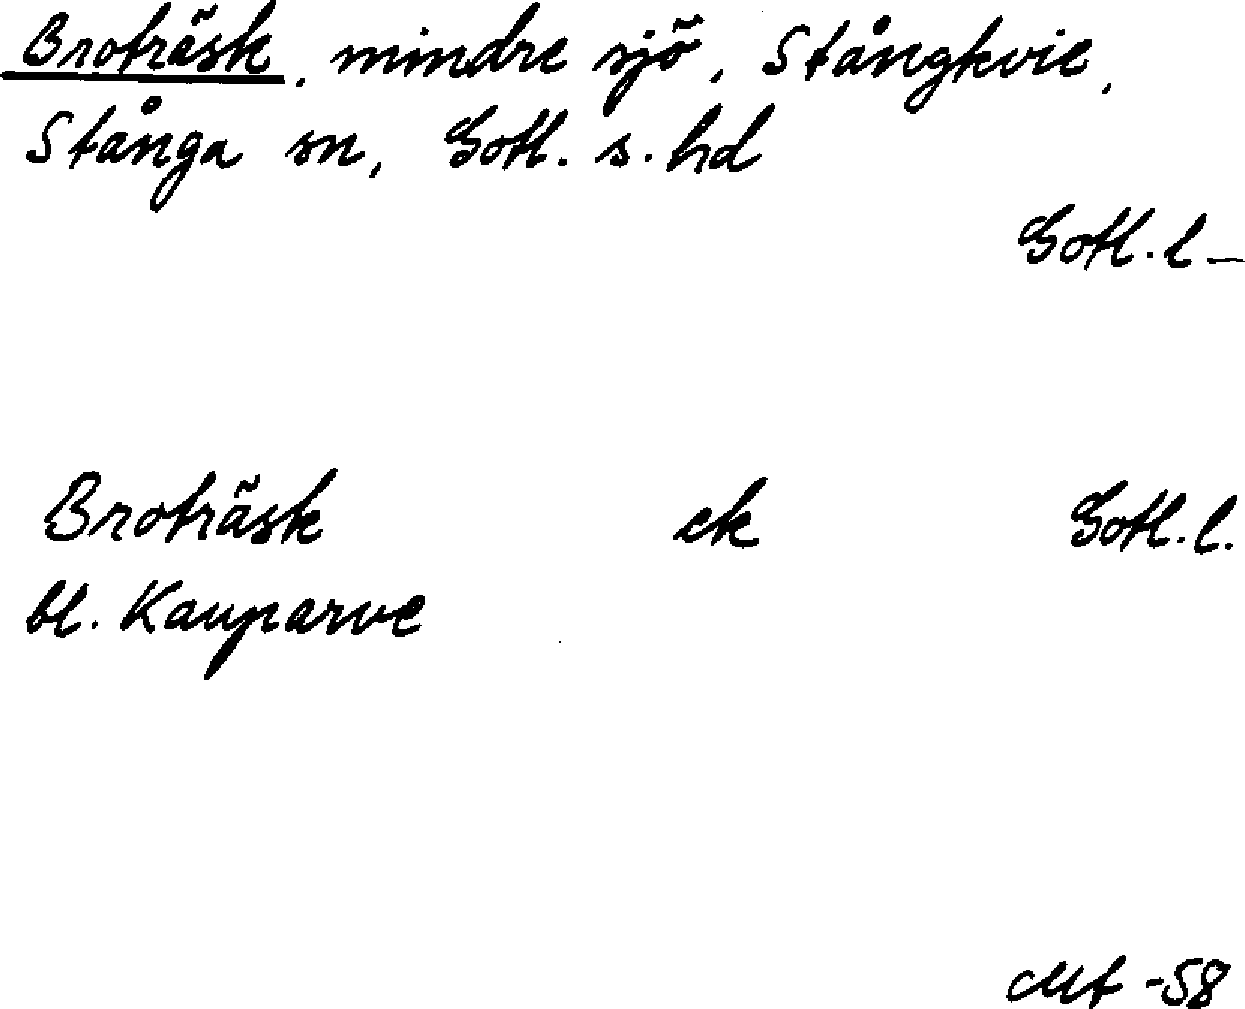 Broträsk, mindre sjö, Stångkvie,
Stånga sn, Gotl. s. hd
Gotl. l –
Broträsk ek Gotl. l.
bl. Kauparve
Mt -58